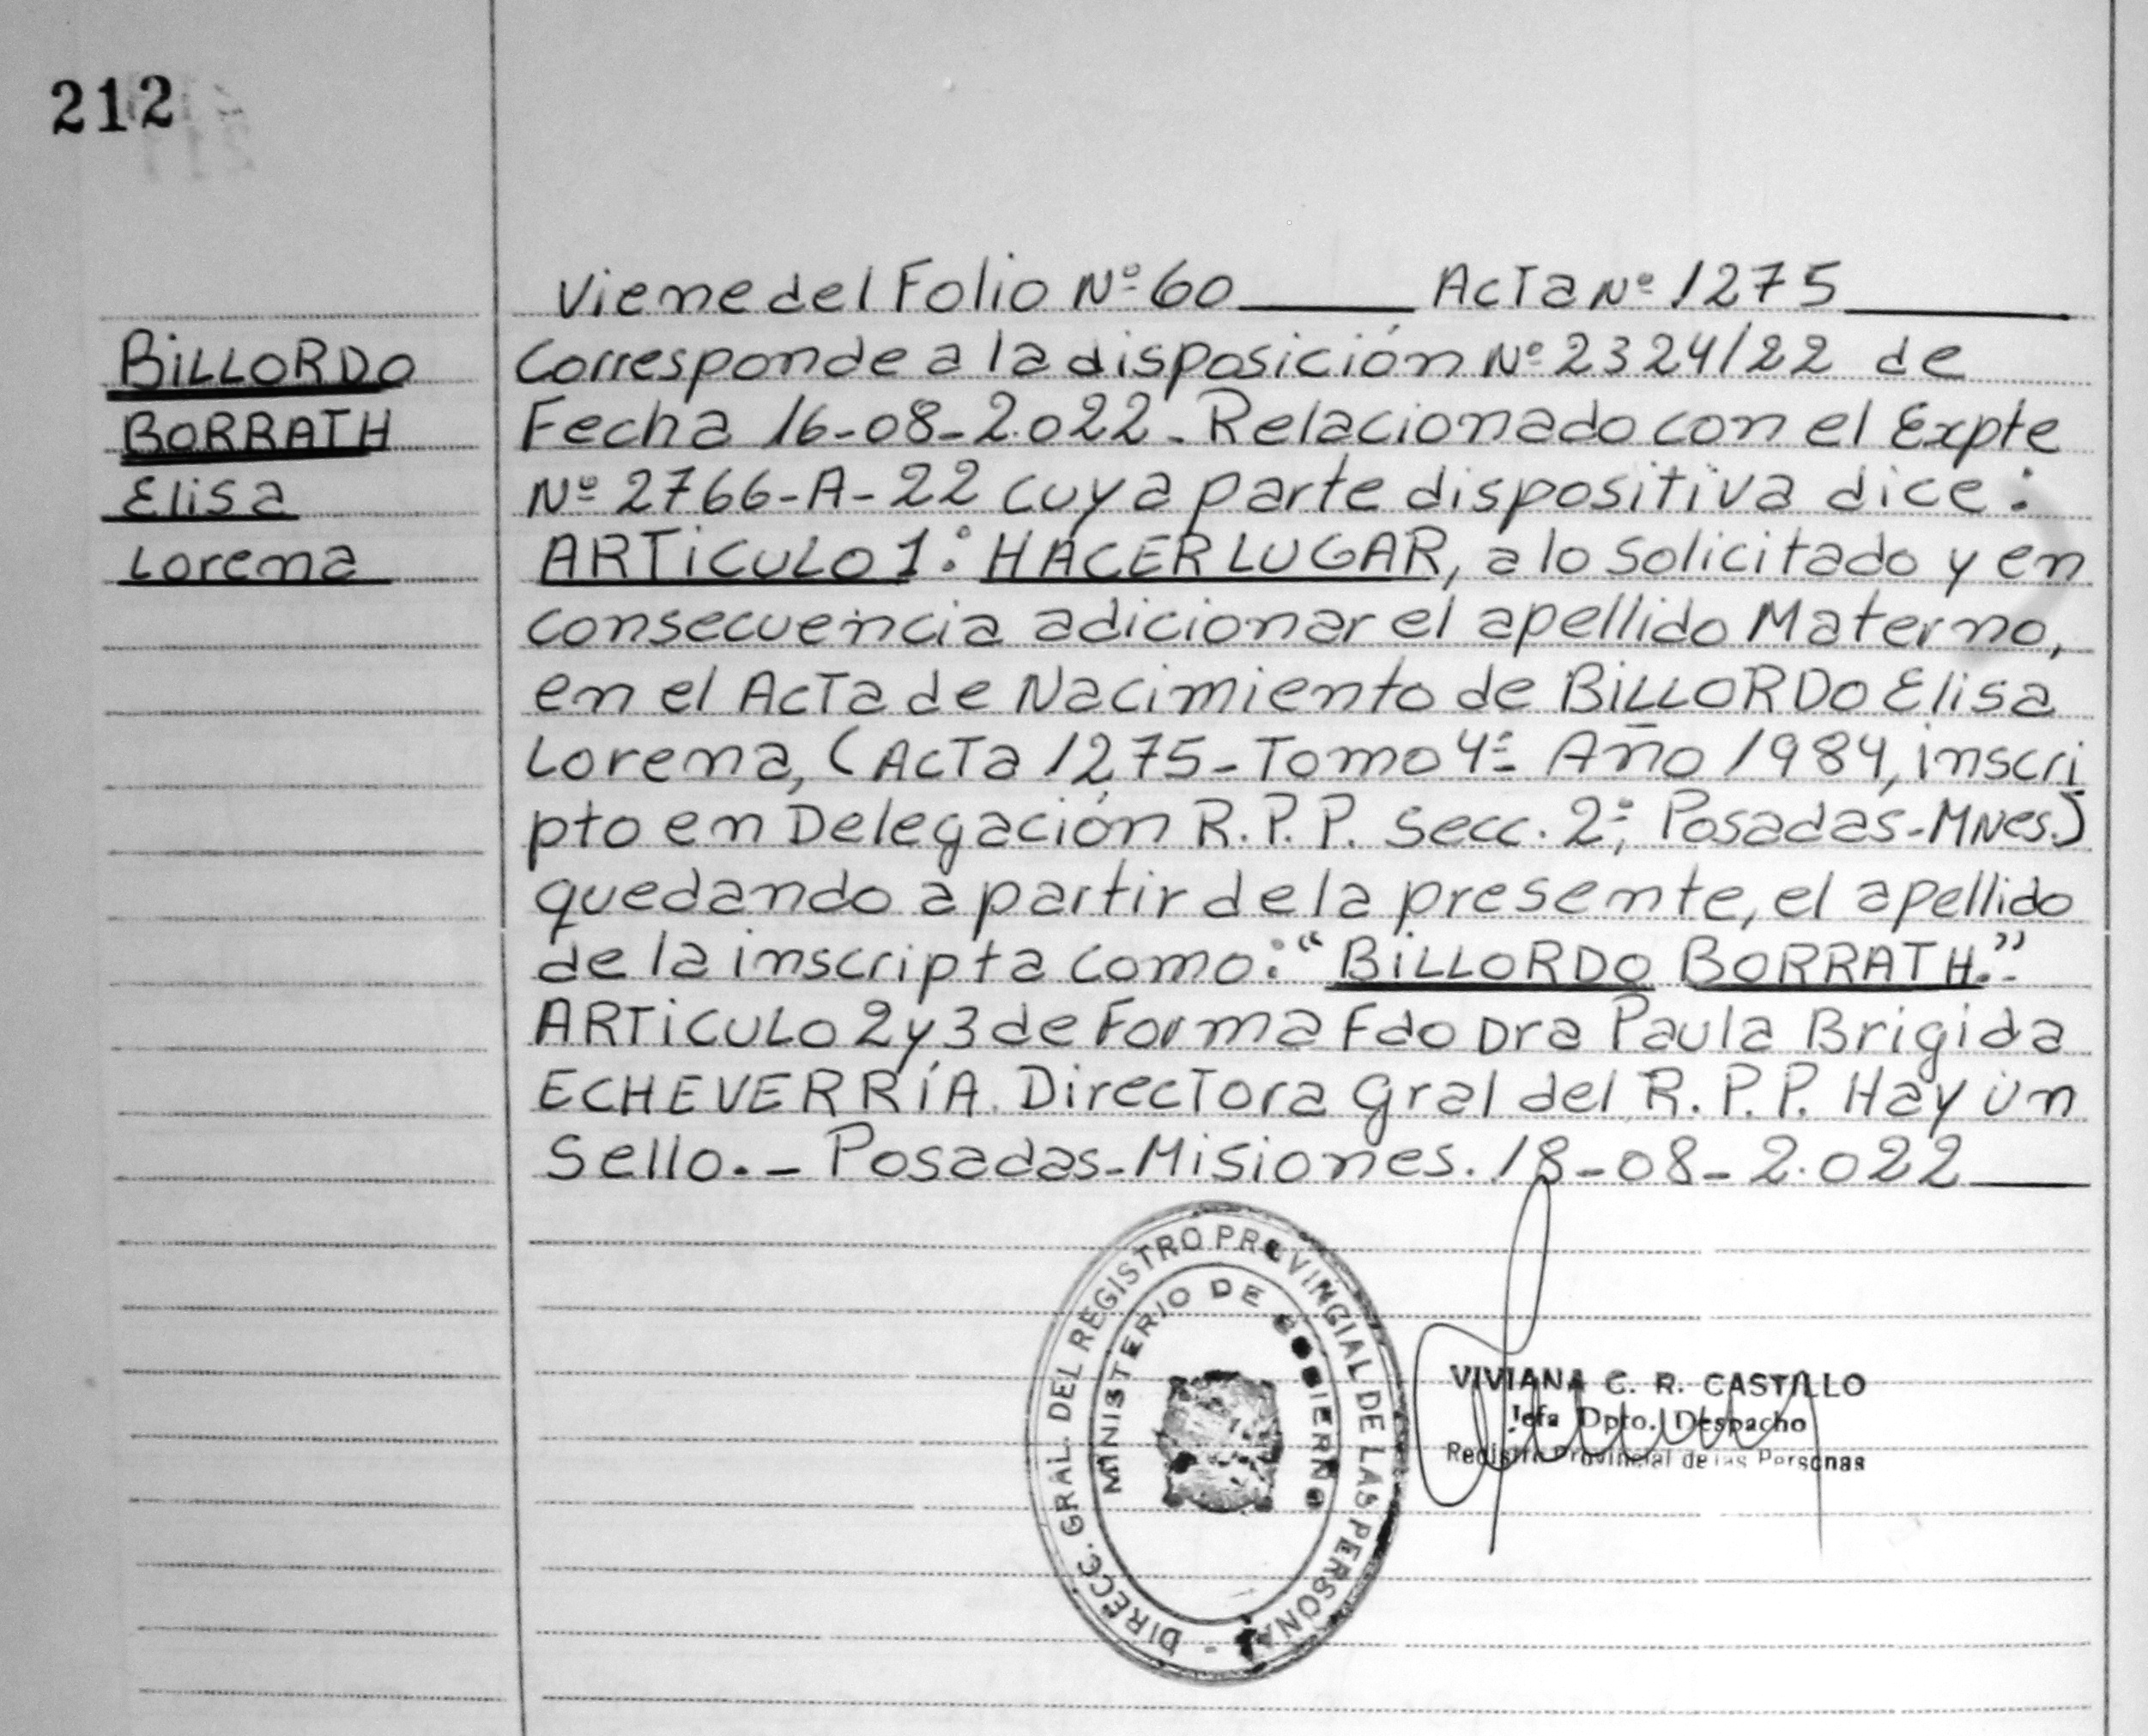 212
Viene del Folio Nº 60 Acta Nº 1275
BiLLORDO
BORRATH
Elisa
Lorena
Corresponde a la disposición Nº 2324/22 de
Fecha 16-08-2.022. Relacionado con el Expte
Nº 2766-A-22 cuya parte dispositiva dice:
ARTiCULO 1: HACER LUGAR, a lo solicitado y en
consecuencia adicionar el apellido Materno,
en el Acta de Nacimiento de BiLLORDO Elisa
Lorena, (Acta 1275-Tomo 4º Año 1984, inscri
pto en Delegación R.P.P. Secc. 2ª; Posadas-MNes.)
quedando a partir de la presente, el apellido
de la inscripta como: "BiLLORDO BORRATH."
ARTiCULO 2 y 3 de Forma Fdo Dra Paula Brigida
ECHEVERRíA. Directora Gral del R.P.P. Hay un
Sello.- Posadas-Misiones. 18-08-2.022
DIRECC. GRAL. DEL REGISTRO PROVINCIAL DE LAS PERSONAS
MINISTERIO DE GOBIERNO
VIVIANA C. R. CASTILLO
Jefa Dpto. Despacho
Registro Provincial de las Personas